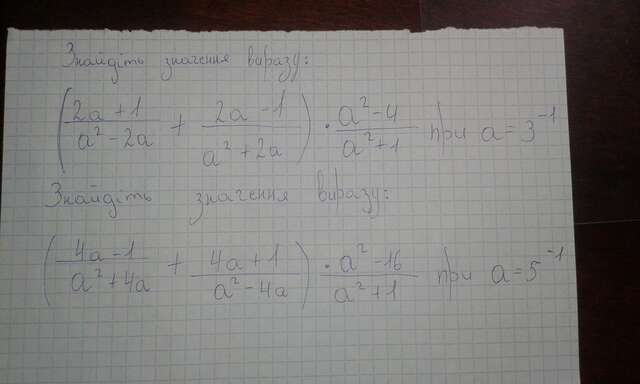 Знайдіть значення виразу:
(2a+1/a²-2a + 2a-1/a²+2a) · a²-4/a²+1 при a=3⁻¹
Знайдіть значення виразу:
(4a-1/a²+4a + 4a+1/a²-4a) · a²-16/a²+1 при a=5⁻¹